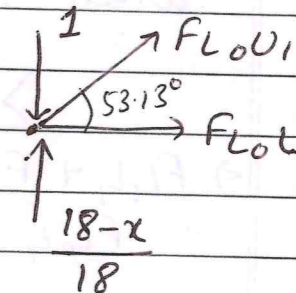 1
FL0U1
53.13°
FL0L
18-x
18